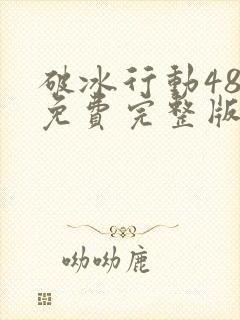 破冰行動48
免費完整版
呦呦鹿